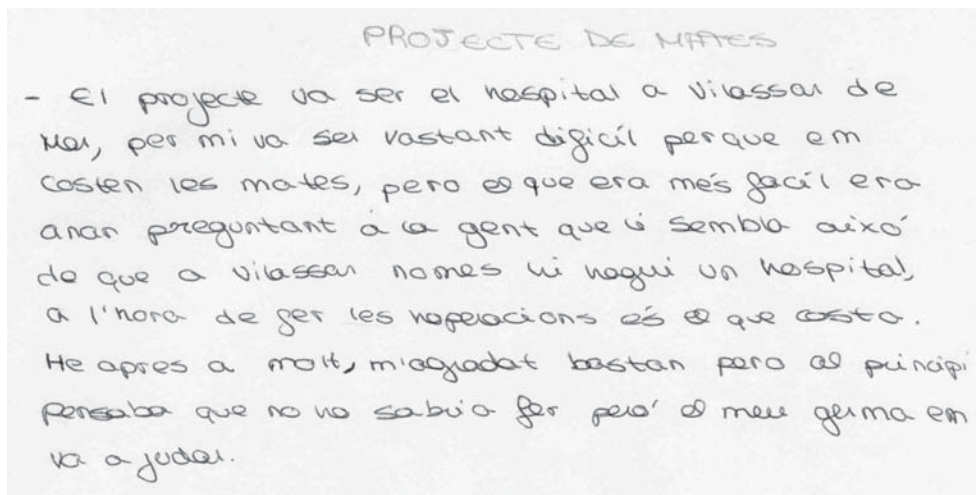 PROJECTE DE MATES
- El projecte va ser el hospital a Vilassar de
Mar, per mi va ser vastant dificíl perque em
costen les mates, pero el que era més facíl era
anar preguntant a la gent que li sembla aixó
de que a vilassar nomes hi hagui un hospital,
a l'hora de fer les hoperacions es el que costa.
He apres a molt, m'agradat bastan pero al principi
pensaba que no ho sabria fer peró el meu germa em
va ajudar.